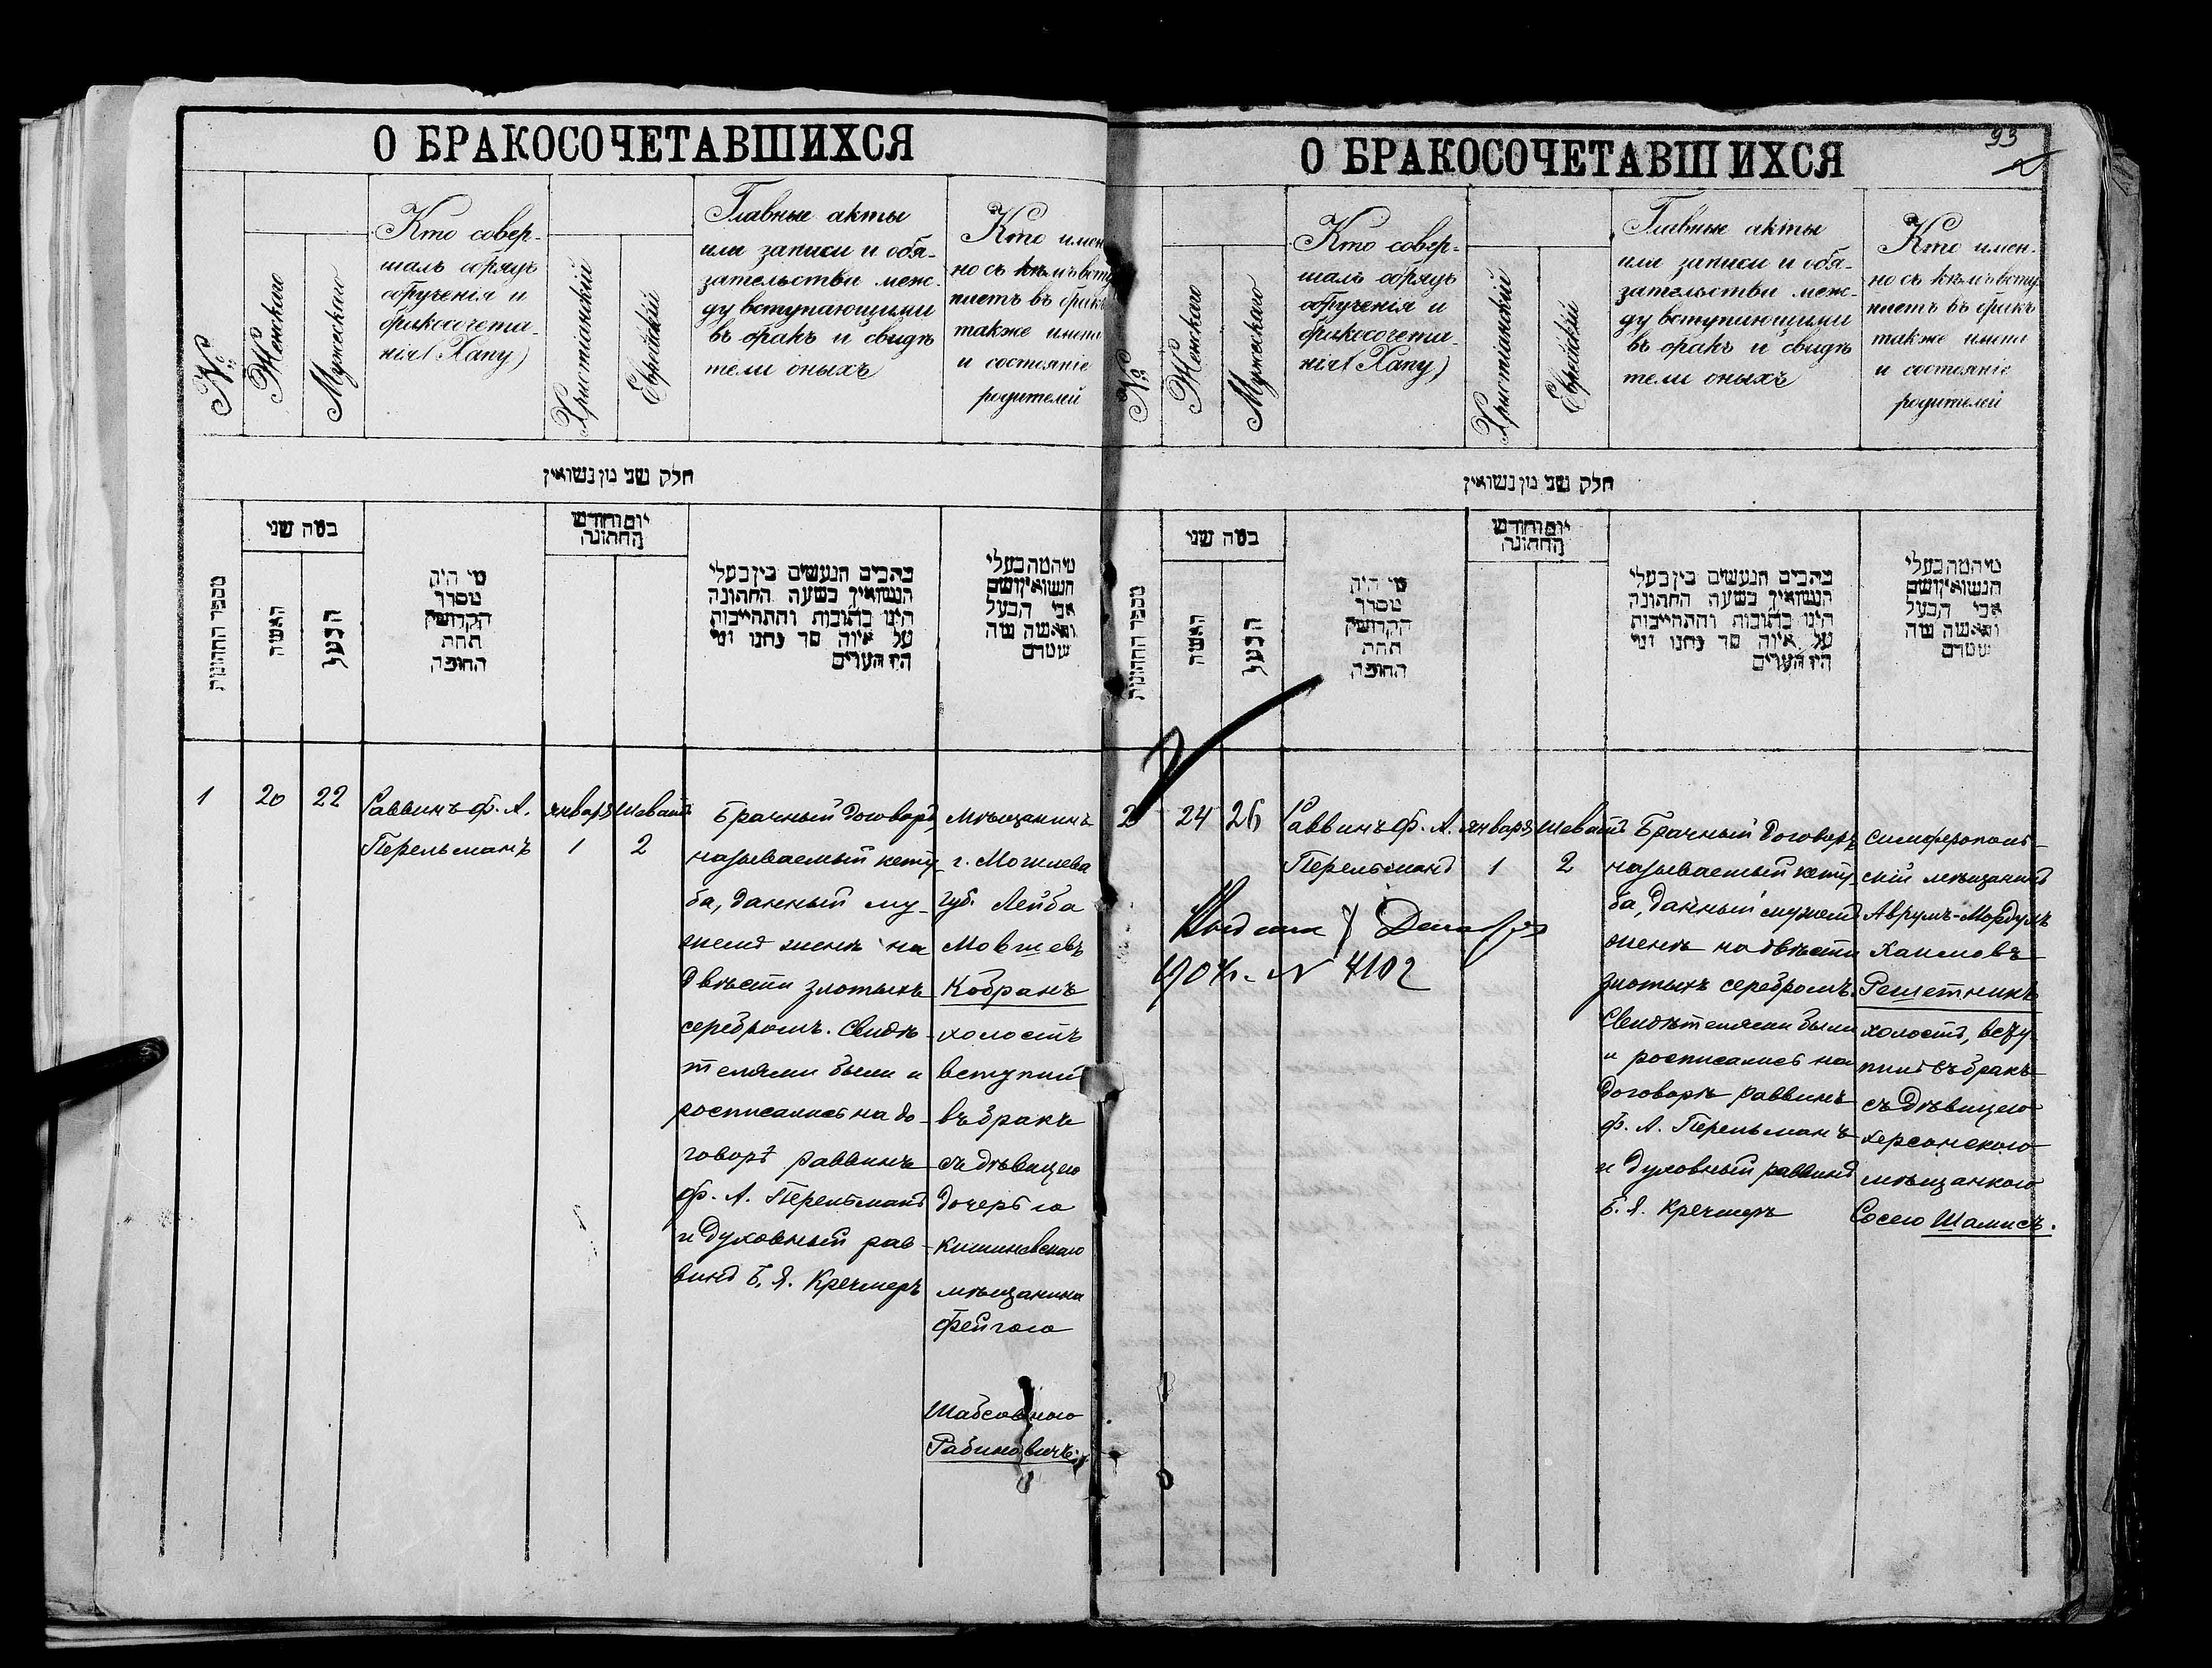 О БРАКОСОЧЕТАВШИХСЯ
№
Женскаго
Мужескаго
Кто совер-
шалъ обрядъ
обрученія и
бракосочета-
нія (Хапу)
Христіанскій
Еврейскій
Главные акты
или записи и обя-
зательства меж-
ду вступающими
въ бракъ и свидѣ
тели оныхъ
Кто имен
но съ кѣмъ всту
паетъ въ бракъ
также имена
и состояніе
родителей
חלק שני מן נשואין
מספר החתונות
כמה שני
האשה
הבעל
מי היה
מסדר
הקדושין
תחת
החופה
יום וחודש
החתונה
כתבים הנעשים בין בעלי
הנשואין בשעה החתונה
היינו כתובות והתחייבות
על איזה סך נתנו ומי
היו העדים
מי המה בעלי
הנשואין ושם
אבי הבעל
והאשה מה
שמדם
1
20
22
Раввинъ Ф. А.
Перельманъ
января
1
Шеватъ
2
Брачный договоръ,
называемый кету
ба, данный му-
жемъ женѣ на
двѣсти злотыхъ
серебромъ. Свидѣ-
телями были и
росписались на до-
говорѣ раввинъ
Ф. А. Перельманъ
и духовный рав-
винъ Б. Я. Кречмеръ
мѣщанинъ
г. Могилева
губ. Лейба
Мовшевъ
Кобранъ
холостъ
вступилъ
въ бракъ
съ дѣвицею
дочерью
кишиневскаго
мѣщанина
Фейгою
Шабсовною
Рабиновичъ.
93
О БРАКОСОЧЕТАВШИХСЯ
№
Женскаго
Мужескаго
Кто совер-
шалъ обрядъ
обрученія и
бракосочета-
нія (Хапу)
Христіанскій
Еврейскій
Главные акты
или записи и обя-
зательства меж-
ду вступающими
въ бракъ и свидѣ
тели оныхъ
Кто имен-
но съ кѣмъ всту
паетъ въ бракъ
также имена
и состояніе
родителей
חלק שני מן נשואין
מספר החתונות
כמה שני
האשה
הבעל
מי היה
מסדר
הקדושין
תחת
החופה
יום וחודש
החתונה
כתבים הנעשים בין בעלי
הנשואין בשעה החתונה
היינו כתובות והתחייבות
על איזה סך נתנו ומי
היו העדים
מי המה בעלי
הנשואין ושם
אבי הבעל
והאשה מה
שמדם
2
24
26
Раввинъ Ф. А.
Перельманъ
января
1
Шеватъ
2
Брачный договоръ
называемый кету-
ба, данный мужемъ
женѣ на двѣсти
злотыхъ серебромъ.
Свидѣтелями были
и росписались на
договорѣ раввинъ
Ф. А. Перельманъ
и духовный раввинъ
Б. Я. Кречмеръ
симферополь-
скій мѣщанинъ
Аврумъ-Мордухъ
Хаимовъ
Решетникъ
холостъ, всту-
пилъ въ бракъ
съ дѣвицею
херсонскою
мѣщанкою
Сосею Шамисъ.
7 Декабря
1904 г. № 4102